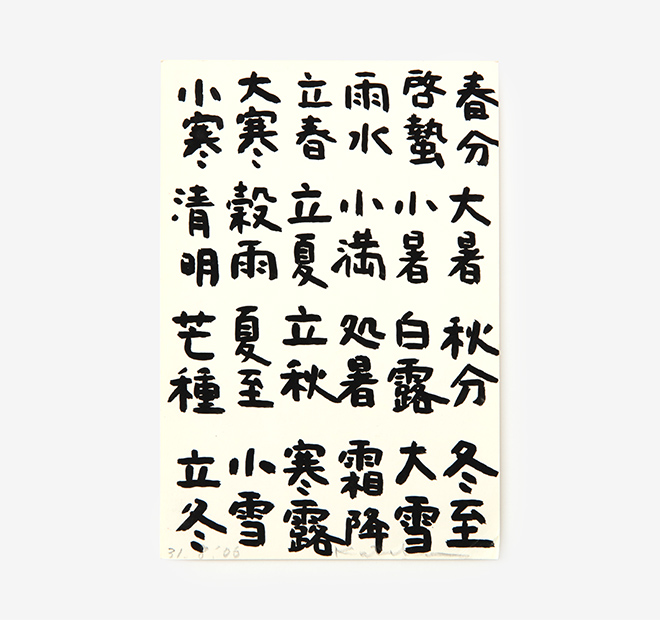 小寒
大寒
立春
雨水
啓蟄
春分
清明
穀雨
立夏
小満
小暑
大暑
芒種
夏至
立秋
処暑
白露
秋分
立冬
小雪
寒露
霜降
大雪
冬至
31. 8. '06